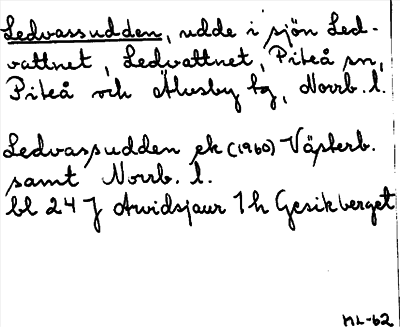 Ledvassudden, udde i sjön Led-
vattnet, Ledvattnet, Piteå sn,
Piteå och Älvsby tg, Norrb. l.
Ledvassudden ek (1960) Västerb.
samt Norrb. l.
bl 24 J Arvidsjaur 1 h Gesikberget
ML-62